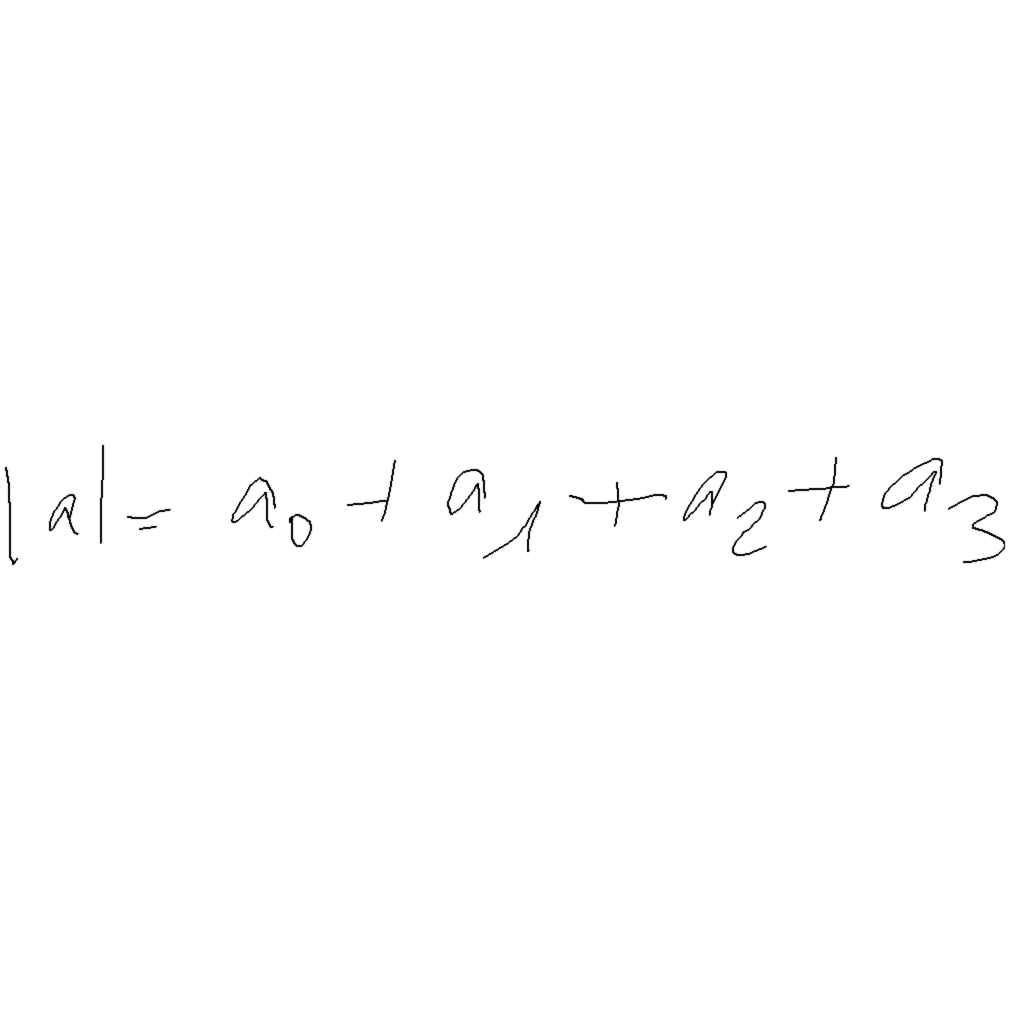 |a| = a₀ + a₁ + a₂ + a₃